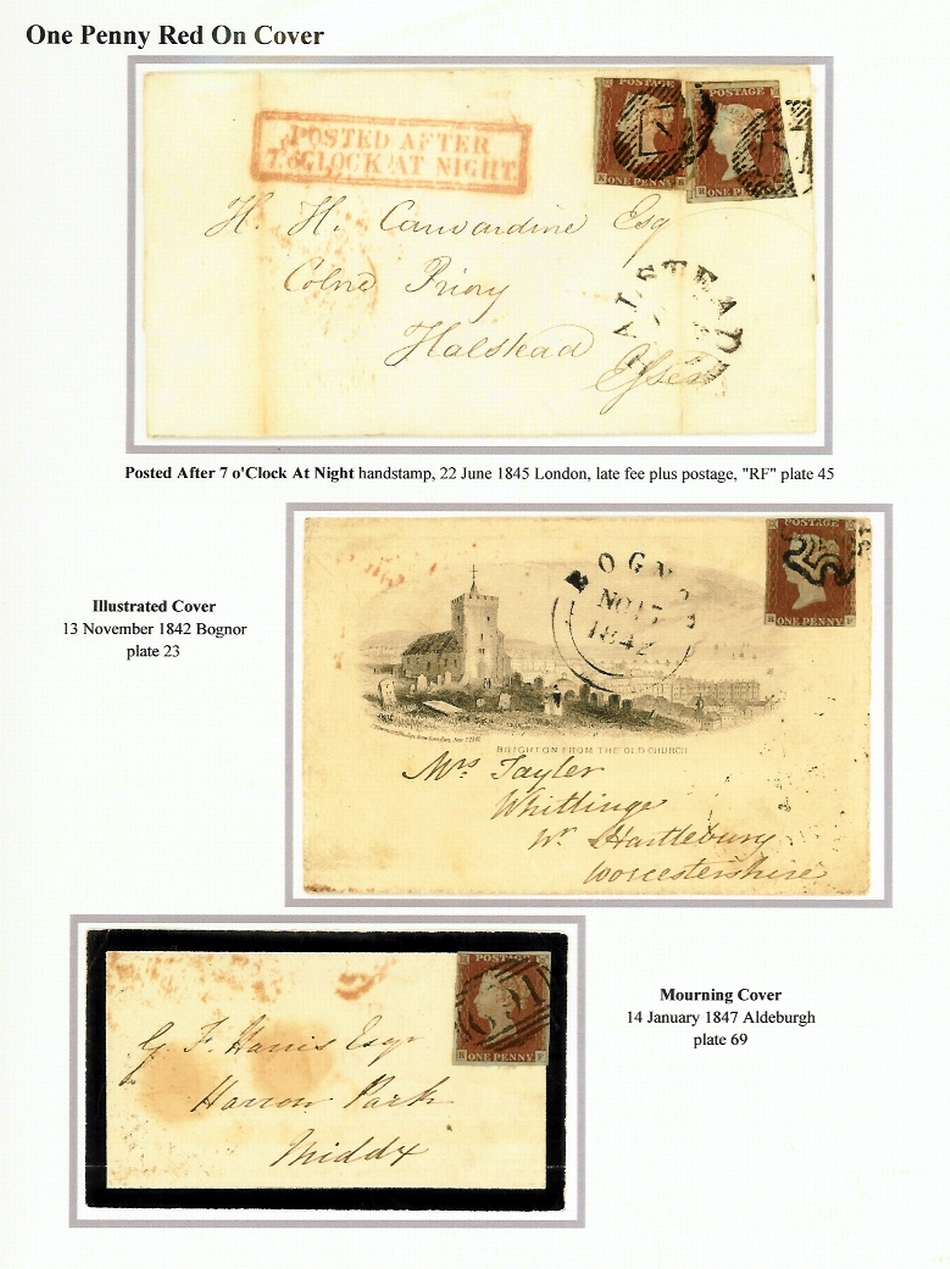 One Penny Red On Cover
POSTED AFTER
7.o'CLOCK AT NIGHT
POSTAGE
ONE PENNY
POSTAGE
R ONE PENNY
H. H. Carwardine Esq
Colne Priory
Halstead
Essex
HALSTEAD
Posted After 7 o'Clock At Night handstamp, 22 June 1845 London, late fee plus postage, "RF" plate 45
Illustrated Cover
13 November 1842 Bognor
plate 23
BOGNOR
1842
POSTAGE
R ONE PENNY F
BRIGHTON FROM THE OLD CHURCH
Mrs Tayler
Whittlinge
Nr Hartlebury
Worcestershire
POSTAGE
R ONE PENNY F
G. F. Harris Esqr
Harrow Park
Middx
Mourning Cover
14 January 1847 Aldeburgh
plate 69